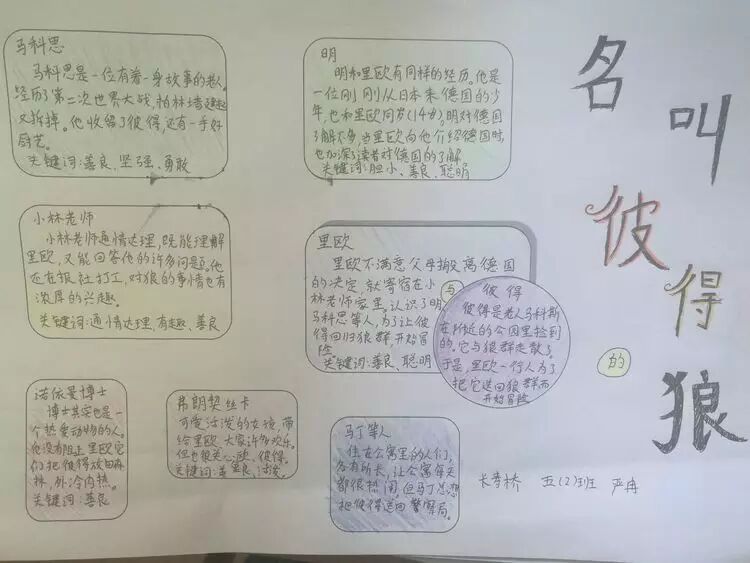 名叫彼得的狼
马科思
马科思是一位有着一身故事的老人。
经历了第二次世界大战,柏林墙建起
又拆掉。他收留了彼得,还有一手好
厨艺。
关键词:善良、坚强、勇敢
明
明和里欧有同样的经历。他是
一位刚刚从日本来德国的少
年,也和里欧同岁(14岁),明对德国
了解不多,当里欧向他介绍德国时,
也加深了读者对德国的了解
关键词:胆小、善良、聪明
小林老师
小林老师通情达理,既能理解
里欧,又能回答他的许多问题。他
还在报社打工,对狼的事情也有
浓厚的兴趣。
关键词:通情达理、有趣、善良
里欧
里欧不满意父母搬离德国
的决定,就寄宿在小
林老师家里。认识了明、
马科思等人,为了让彼
得回归狼群,开始冒
险。
关键词:善良、聪明
与
彼得
彼得是老人马科斯
在附近的公园里捡到
的。它与狼群走散了。
于是,里欧一行人为了
把它送回狼群而
开始冒险
诺依曼博士
博士其实也是一
个热爱动物的人。
他没有阻止里欧它
们把彼得放回森
林,外冷内热。
关键词:善良
弗朗契丝卡
可爱活泼的女孩,带
给里欧、大家许多欢乐。
但也很关心欧、彼得。
关键词:善良、活泼
马丁等人
住在公寓里的人们,
各有所长,让公寓每天
都很热闹,但马丁总想
把彼得送回警察局。
长寿桥 五(2)班 严冉